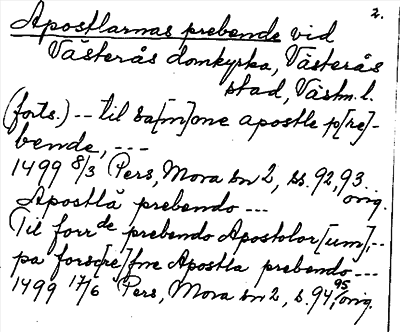 2.
Apostlarnas prebende vid
Västerås domkyrka, Västerås
stad, Västm. l.
(forts.) -- til sa[m]one apostle p[re]-
bende, ---
1499 8/3 Pers, Mora sn 2, ss. 92, 93. orig.
Apostlā prebendo ---
Til forrde prebendo Apostolor[um],--
pa forsc[re]fne Apostla prebendo ---
1499 17/6 Pers, Mora sn 2, s. 94, 95, orig.